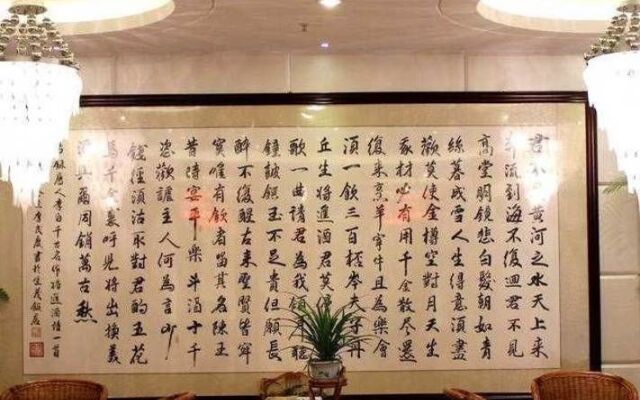 君不見黄河之水天上来
奔流到海不復迴君不見
高堂明鏡悲白髮朝如青
絲暮成雪人生得意須盡
歡莫使金樽空對月天生
我材必有用千金散尽還
復来烹羊宰牛且為樂會
須一飲三百杯岑夫子丹
丘生將進酒君莫停
歌一曲請君為我傾耳聽
鐘鼓饌玉不足貴但願長
醉不復醒古来聖賢皆寂
寞唯有飲者留其名陳王
昔時宴平樂斗酒十千
恣歡謔主人何為言少
錢徑須沽取對君酌五花
馬千金裘呼兒將出換美
酒與爾同銷萬古愁
錄唐人李白千古名作將進酒詩一首